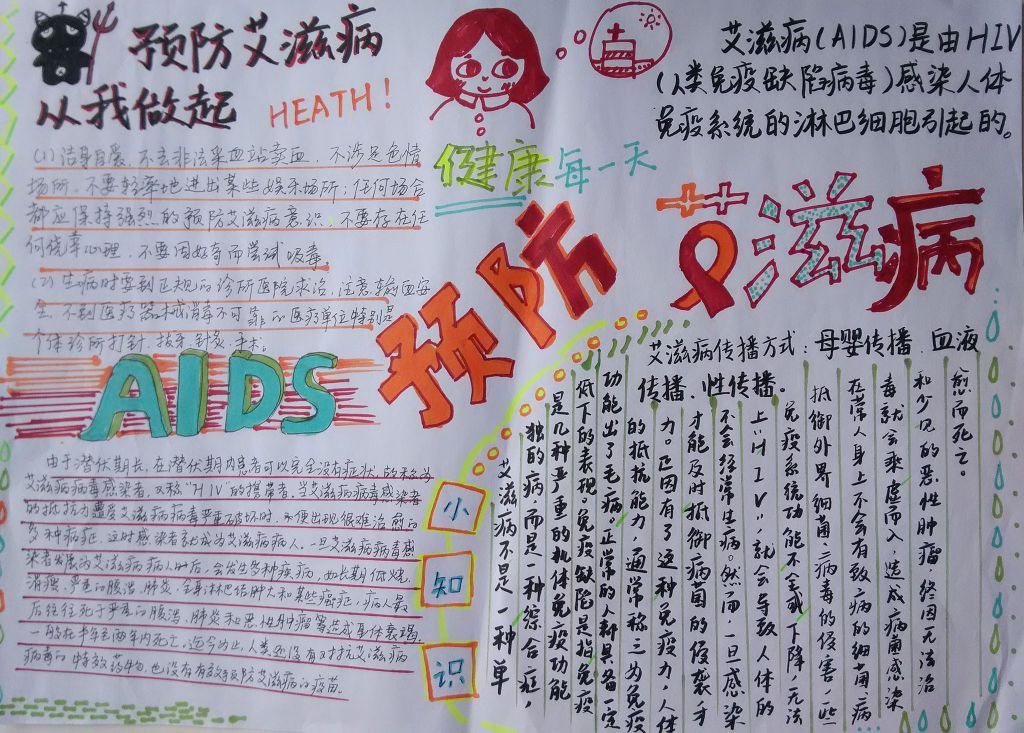 预防艾滋病
从我做起
HEATH!
健康每一天
艾滋病(AIDS)是由HIV
(人类免疫缺陷病毒)感染人体
免疫系统的淋巴细胞引起的。
预防艾滋病
(1)洁身自爱、不去非法采血站卖血、不涉足色情
场所、不要轻率地进出某些娱乐场所;任何场合
都应保持强烈的预防艾滋病意识、不要存在任
何侥幸心理、不要因好奇而尝试吸毒。
(2)生病时要到正规的诊所医院求治,注意输血安
全、不到医疗器械消毒不可靠的医疗单位特别是
个体诊所打针、拔牙、针灸、手术。
AIDS
由于潜伏期长,在潜伏期内患者可以完全没有症状,故称为
艾滋病病毒感染者,又称"HIV"的携带者,当艾滋病病毒感染者
的抵抗力遭受艾滋病病毒严重破坏时,便出现很难治愈的
多种病症,这时感染者就成为艾滋病病人。一旦艾滋病病毒感
染者发展为艾滋病病人时后,会发生多种疾病,如长期低烧、
消瘦、严重的腹泻、肺炎、全身淋巴结肿大和某些癌症,病人最
后往往死于严重的腹泻、肺炎和恶性肿瘤等造成身体衰竭。
一般在半年至两年内死亡,迄今为止,人类还没有对抗艾滋病
病毒的特效药物,也没有有效预防艾滋病的疫苗。
小
知
识
艾滋病传播方式:母婴传播、血液
传播、性传播。
艾滋病不是一种单
独的病,而是一种综合症,
是几种严重的机体免疫功能
低下的表现。免疫缺陷是指免疫
功能出了毛病。正常的人都具备一定
的抵抗能力,通常称之为免疫
力。正因有了这种免疫力,人体
才能及时抵御病菌的侵袭,才
不会经常生病。然而一旦感染
上"HIV"就会导致人体的
免疫系统功能不全或下降,无法
抵御外界细菌、病毒的侵害,一些
在常人身上不会有致病的细菌、病
毒就会乘虚而入,造成病菌感染
和少见的恶性肿瘤,终因无法治
愈而死亡。